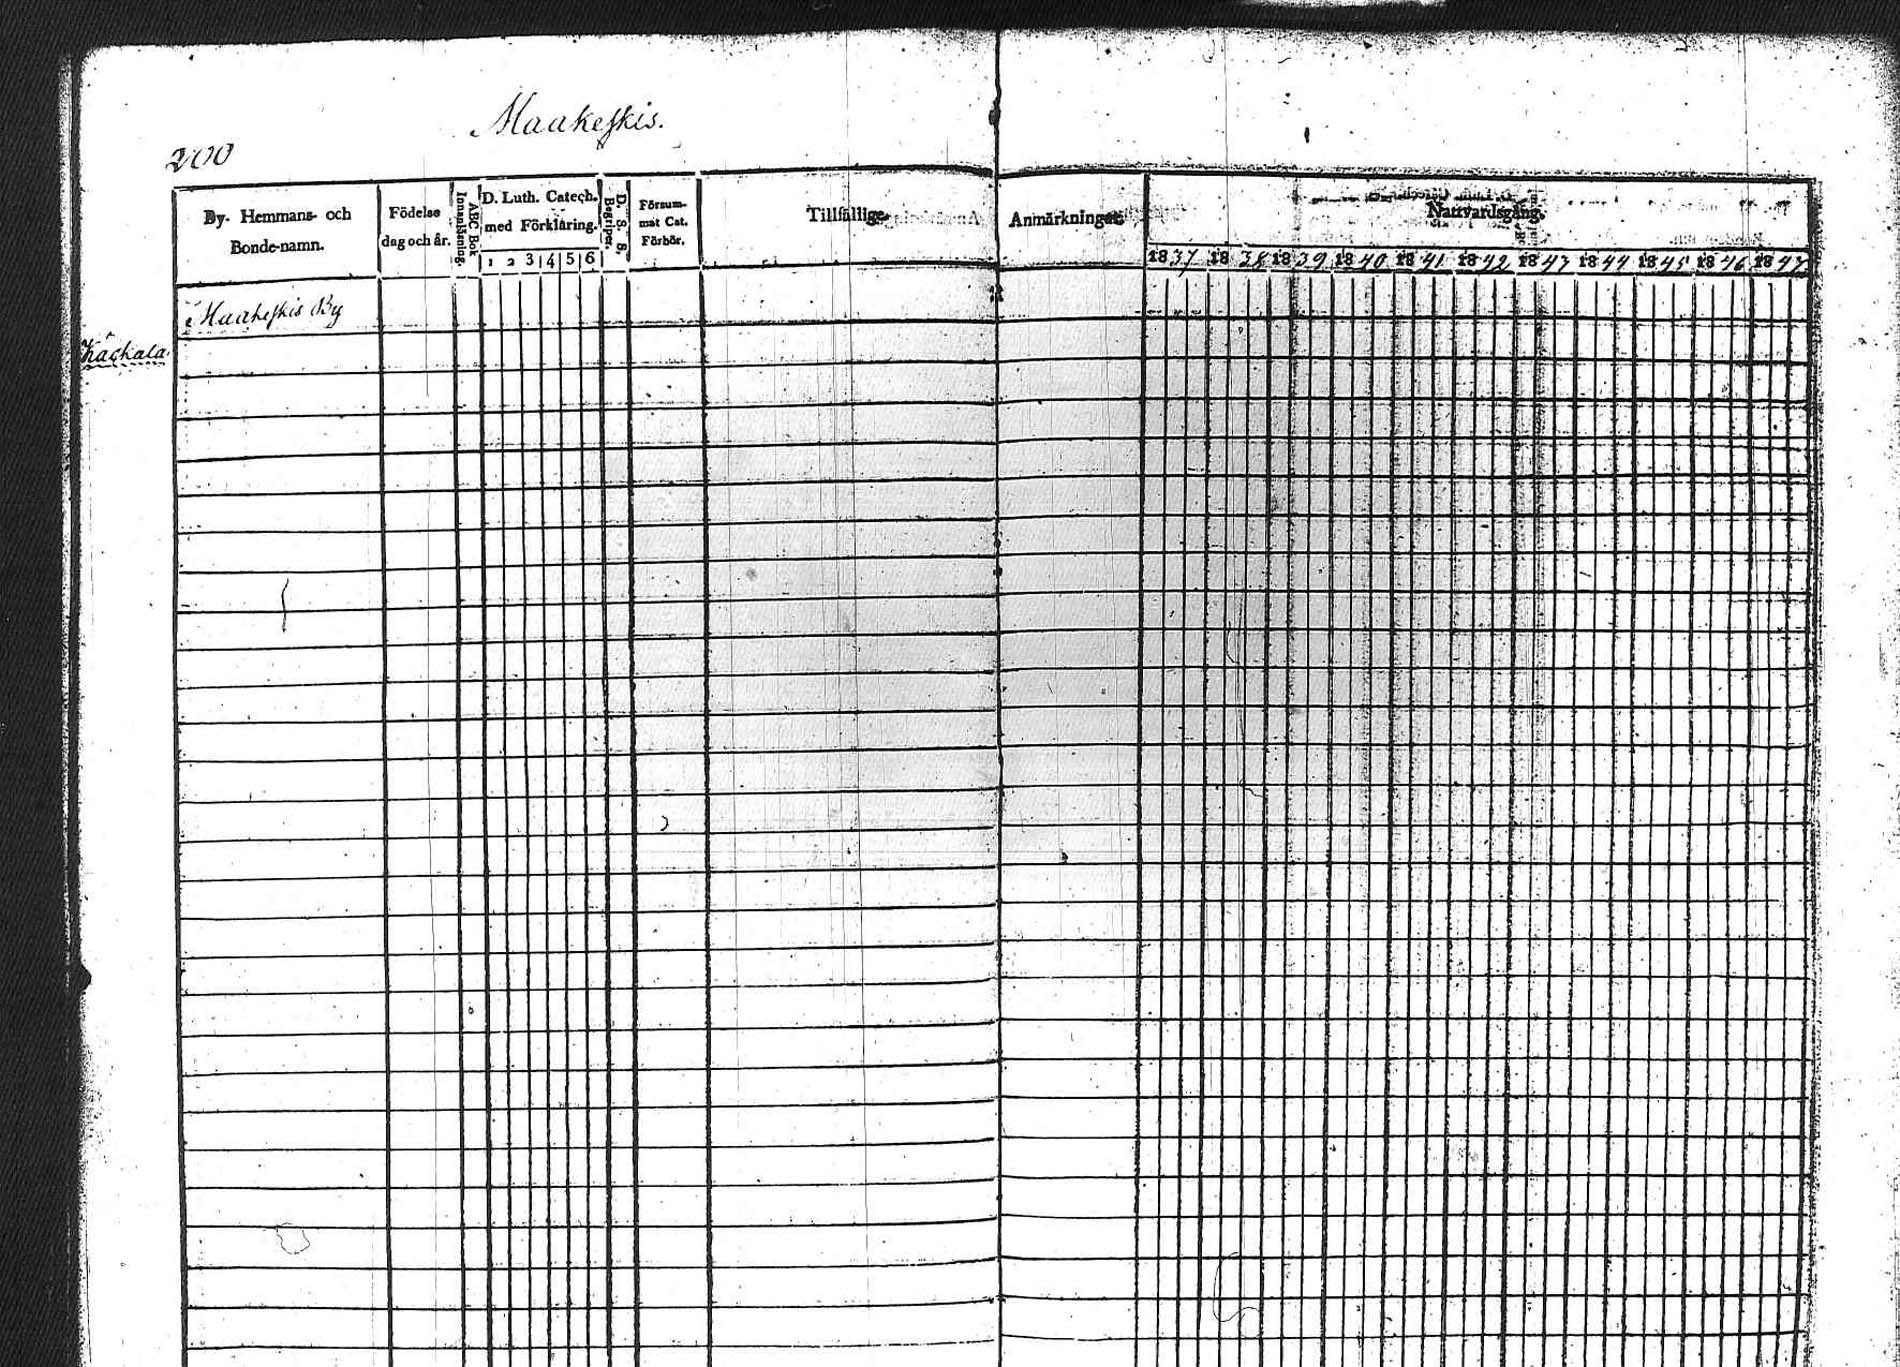 Maakeskis.
200
By- Hemmans- och
Bonde-namn.
Födelse
dag och år.
ABC Bok
Innanläsning.
D. Luth. Catech.
med Förklaring.
1 2 3 4 5 6
D. S. S.
Begriper.
Försum-
mat Cat.
Förhör.
Tillfällige
Anmärkningar.
Nattvardsgång.
1837 1838 1839 1840 1841 1842 1843 1844 1845 1846 1847
Maakeskis By
Kackala